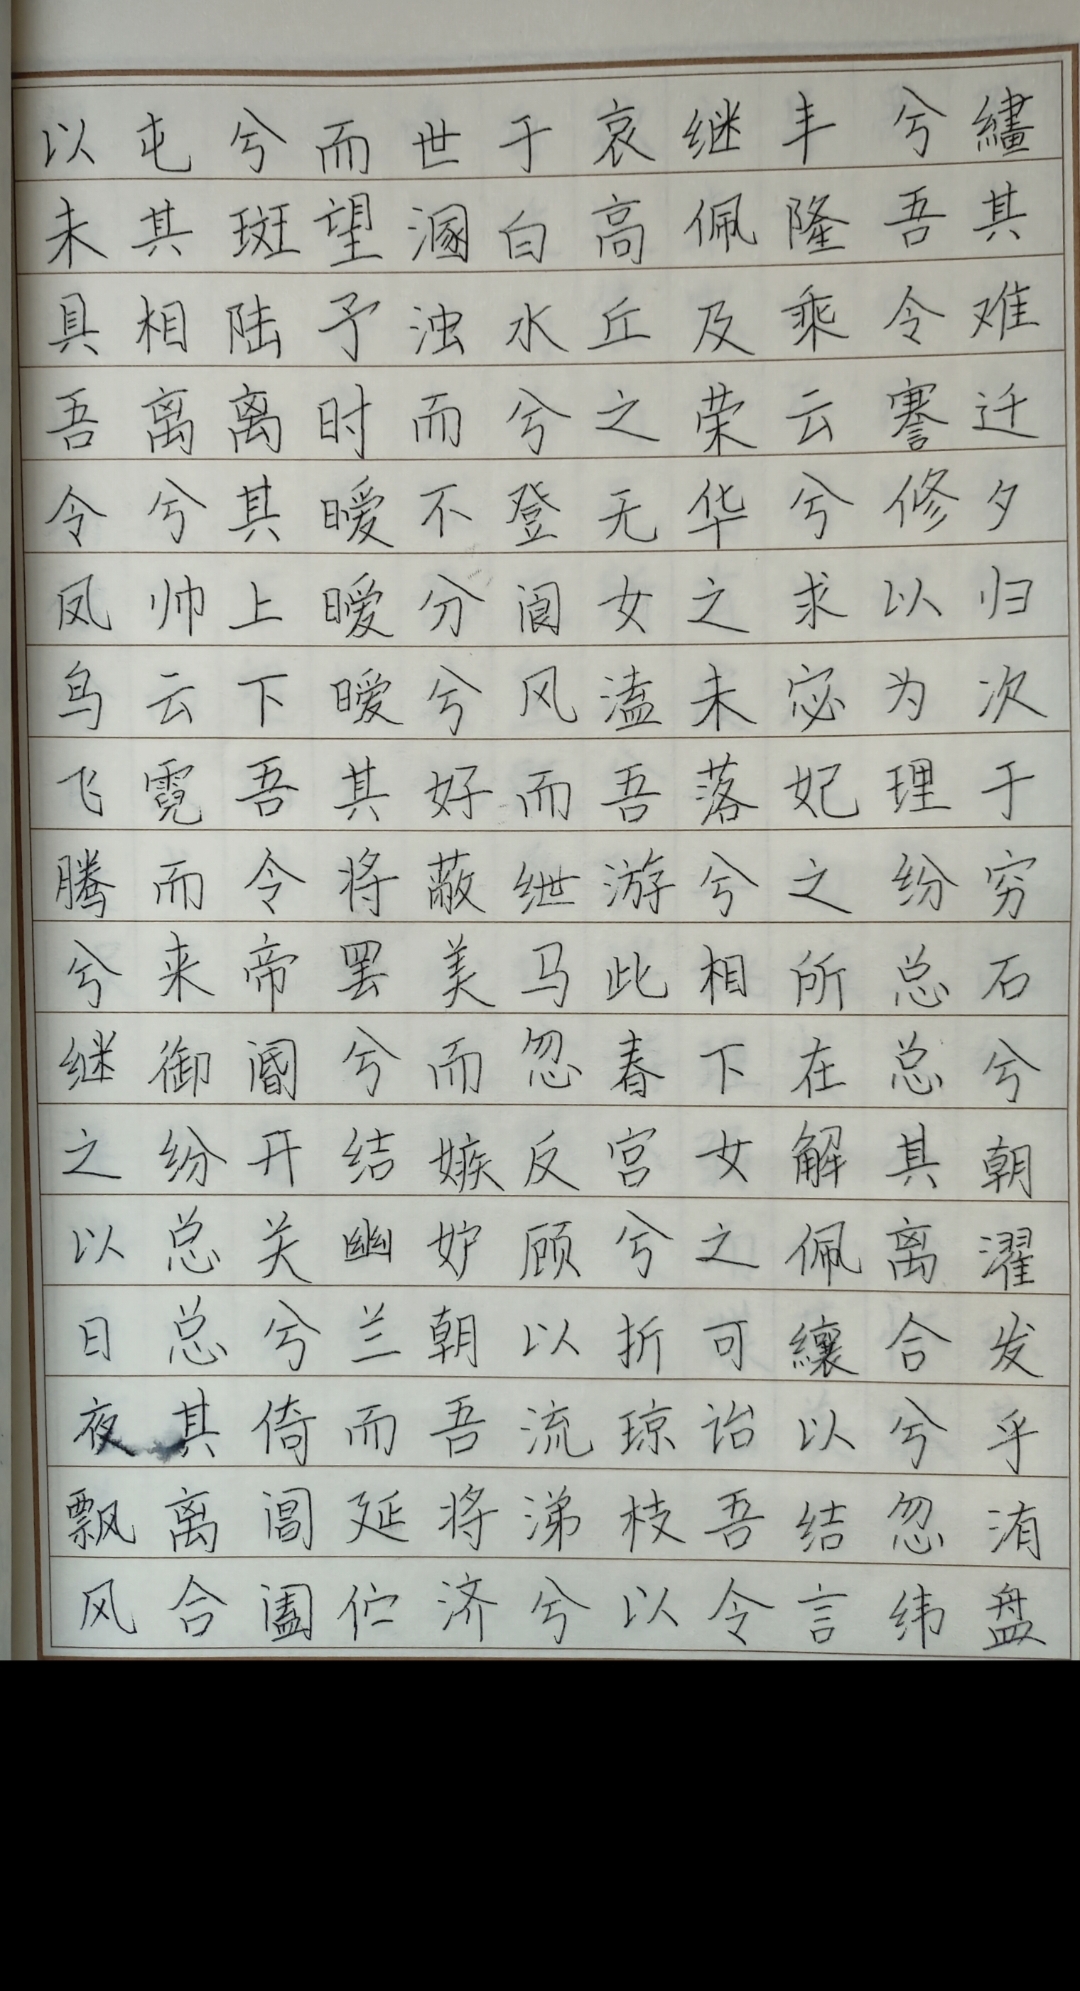 以未具吾令凤鸟飞腾兮继之以日夜飘风
屯其相离兮帅云霓而来御纷总总其离合
兮斑陆离其上下吾令帝阍开关兮倚阊阖
而望予时暧暧暧其将罢兮结幽兰而延伫
世溷浊而不分兮好蔽美而嫉妒朝吾将济
于白水兮登阆风而绁马忽反顾以流涕兮
哀高丘之无女溘吾游此春宫兮折琼枝以
继佩及荣华之未落兮相下女之可诒吾令
丰隆乘云兮求宓妃之所在解佩纕以结言
兮吾令謇修以为理纷总总其离合兮忽纬
繣其难迁夕归次于穷石兮朝濯发乎洧盘